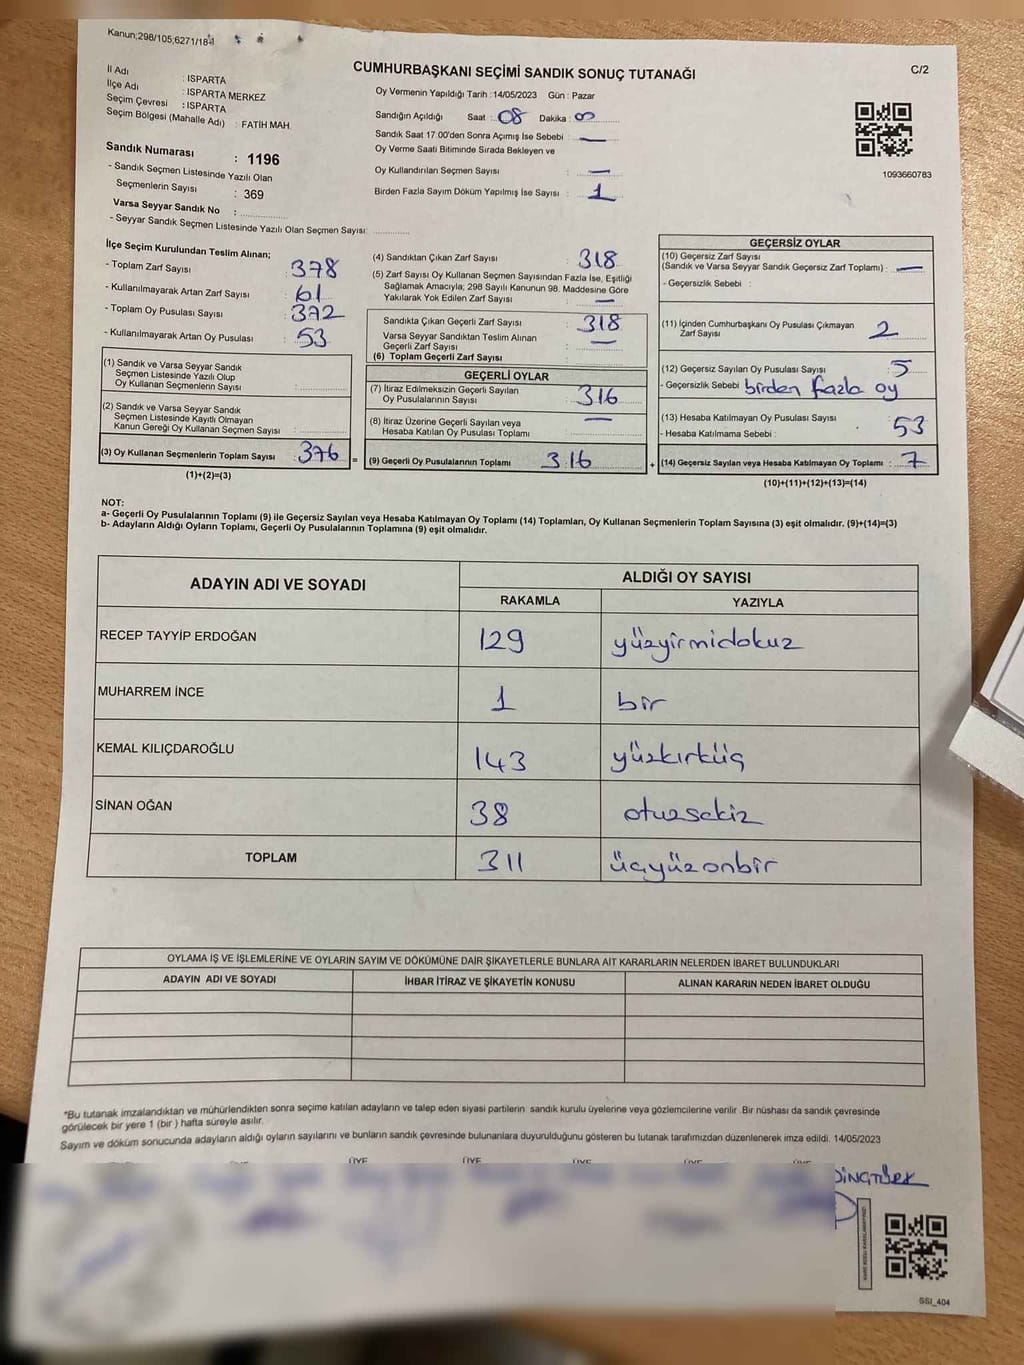 Kanun;298/105;6271/18-1
CUMHURBAŞKANI SEÇİMİ SANDIK SONUÇ TUTANAĞI
C/2
İl Adı : ISPARTA
İlçe Adı : ISPARTA MERKEZ
Seçim Çevresi : ISPARTA
Seçim Bölgesi (Mahalle Adı) : FATİH MAH.
Oy Vermenin Yapıldığı Tarih :14/05/2023 Gün : Pazar
Sandığın Açıldığı Saat : 08 Dakika : 00
Sandık Saat 17.00'den Sonra Açımış İse Sebebi : —
Oy Verme Saati Bitiminde Sırada Bekleyen ve
Oy Kullandırılan Seçmen Sayısı : —
Birden Fazla Sayım Döküm Yapılmış İse Sayısı : 1
1093660783
Sandık Numarası : 1196
- Sandık Seçmen Listesinde Yazılı Olan
Seçmenlerin Sayısı : 369
Varsa Seyyar Sandık No :
- Seyyar Sandık Seçmen Listesinde Yazılı Olan Seçmen Sayısı:
İlçe Seçim Kurulundan Teslim Alınan;
- Toplam Zarf Sayısı : 378
- Kullanılmayarak Artan Zarf Sayısı : 61
- Toplam Oy Pusulası Sayısı : 372
- Kullanılmayarak Artan Oy Pusulası : 53
(1) Sandık ve Varsa Seyyar Sandık
Seçmen Listesinde Yazılı Olup
Oy Kullanan Seçmenlerin Sayısı :
(2) Sandık ve Varsa Seyyar Sandık
Seçmen Listesinde Kayıtlı Olmayan
Kanun Gereği Oy Kullanan Seçmen Sayısı :
(3) Oy Kullanan Seçmenlerin Toplam Sayısı : 376 =
(1)+(2)=(3)
(4) Sandıktan Çıkan Zarf Sayısı : 318
(5) Zarf Sayısı Oy Kullanan Seçmen Sayısından Fazla İse, Eşitliği
Sağlamak Amacıyla; 298 Sayılı Kanunun 98. Maddesine Göre
Yakılarak Yok Edilen Zarf Sayısı : —
Sandıkta Çıkan Geçerli Zarf Sayısı : 318
Varsa Seyyar Sandıktan Teslim Alınan
Geçerli Zarf Sayısı : —
(6) Toplam Geçerli Zarf Sayısı :
GEÇERLİ OYLAR
(7) İtiraz Edilmeksizin Geçerli Sayılan
Oy Pusulalarının Sayısı : 316
(8) İtiraz Üzerine Geçerli Sayılan veya
Hesaba Katılan Oy Pusulası Toplamı : —
(9) Geçerli Oy Pusulalarının Toplamı 316 +
GEÇERSİZ OYLAR
(10) Geçersiz Zarf Sayısı
(Sandık ve Varsa Seyyar Sandık Geçersiz Zarf Toplamı) : —
- Geçersizlik Sebebi :
(11) İçinden Cumhurbaşkanı Oy Pusulası Çıkmayan
Zarf Sayısı : 2
(12) Geçersiz Sayılan Oy Pusulası Sayısı : 5
- Geçersizlik Sebebi birden fazla oy
(13) Hesaba Katılmayan Oy Pusulası Sayısı : 53
- Hesaba Katılmama Sebebi :
(14) Geçersiz Sayılan veya Hesaba Katılmayan Oy Toplamı : 7
(10)+(11)+(12)+(13)=(14)
NOT:
a- Geçerli Oy Pusulalarının Toplamı (9) ile Geçersiz Sayılan veya Hesaba Katılmayan Oy Toplamı (14) Toplamları, Oy Kullanan Seçmenlerin Toplam Sayısına (3) eşit olmalıdır. (9)+(14)=(3)
b- Adayların Aldığı Oyların Toplamı, Geçerli Oy Pusulalarının Toplamına (9) eşit olmalıdır.
ADAYIN ADI VE SOYADI ALDIĞI OY SAYISI
RAKAMLA YAZIYLA
RECEP TAYYİP ERDOĞAN 129 yüzyirmidokuz
MUHARREM İNCE 1 bir
KEMAL KILIÇDAROĞLU 143 yüzkırküç
SİNAN OĞAN 38 otuzsekiz
TOPLAM 311 üçyüzonbir
OYLAMA İŞ VE İŞLEMLERİNE VE OYLARIN SAYIM VE DÖKÜMÜNE DAİR ŞİKAYETLERLE BUNLARA AİT KARARLARIN NELERDEN İBARET BULUNDUKLARI
ADAYIN ADI VE SOYADI İHBAR İTİRAZ VE ŞİKAYETİN KONUSU ALINAN KARARIN NEDEN İBARET OLDUĞU
*Bu tutanak imzalandıktan ve mühürlendikten sonra seçime katılan adayların ve talep eden siyasi partilerin sandık kurulu üyelerine veya gözlemcilerine verilir .Bir nüshası da sandık çevresinde
görülecek bir yere 1 (bir ) hafta süreyle asılır.
Sayım ve döküm sonucunda adayların aldığı oyların sayılarını ve bunların sandık çevresinde bulunanlara duyurulduğunu gösteren bu tutanak tarafımızdan düzenlenerek imza edildi. 14/05/2023
ÜYE ÜYE ÜYE ÜYE ÜYE
DİNÇTÜRK
SSI_404